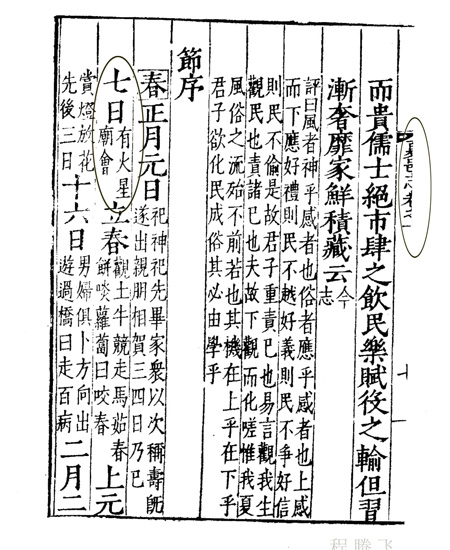 而貴儒士絕市肆之飲民樂賦役之輸但習
漸奢靡家鮮積藏云今
志
評曰風者神乎感者也俗者應乎感者也上感
而下應好禮則民不越好義則民不爭好信
則民不偷是故君子重責已也易言觀我生
觀民也責諸已也夫故下觀而化嗟惟我夏
風俗之流殆不前若也其機在上乎在下乎
君子欲化民成俗其必由學乎
節序
春正月元日祀神祀先畢家衆以次稱壽旣
遂出親朋相賀三四日乃已
七日有火星
廟會
立春觀土牛競走馬茹春
餅啖蘿蔔曰咬春
上元
賞燈放花
先後三日
十六日男婦俱卜方向出
遊過橋曰走百病
二月二
程騰飞